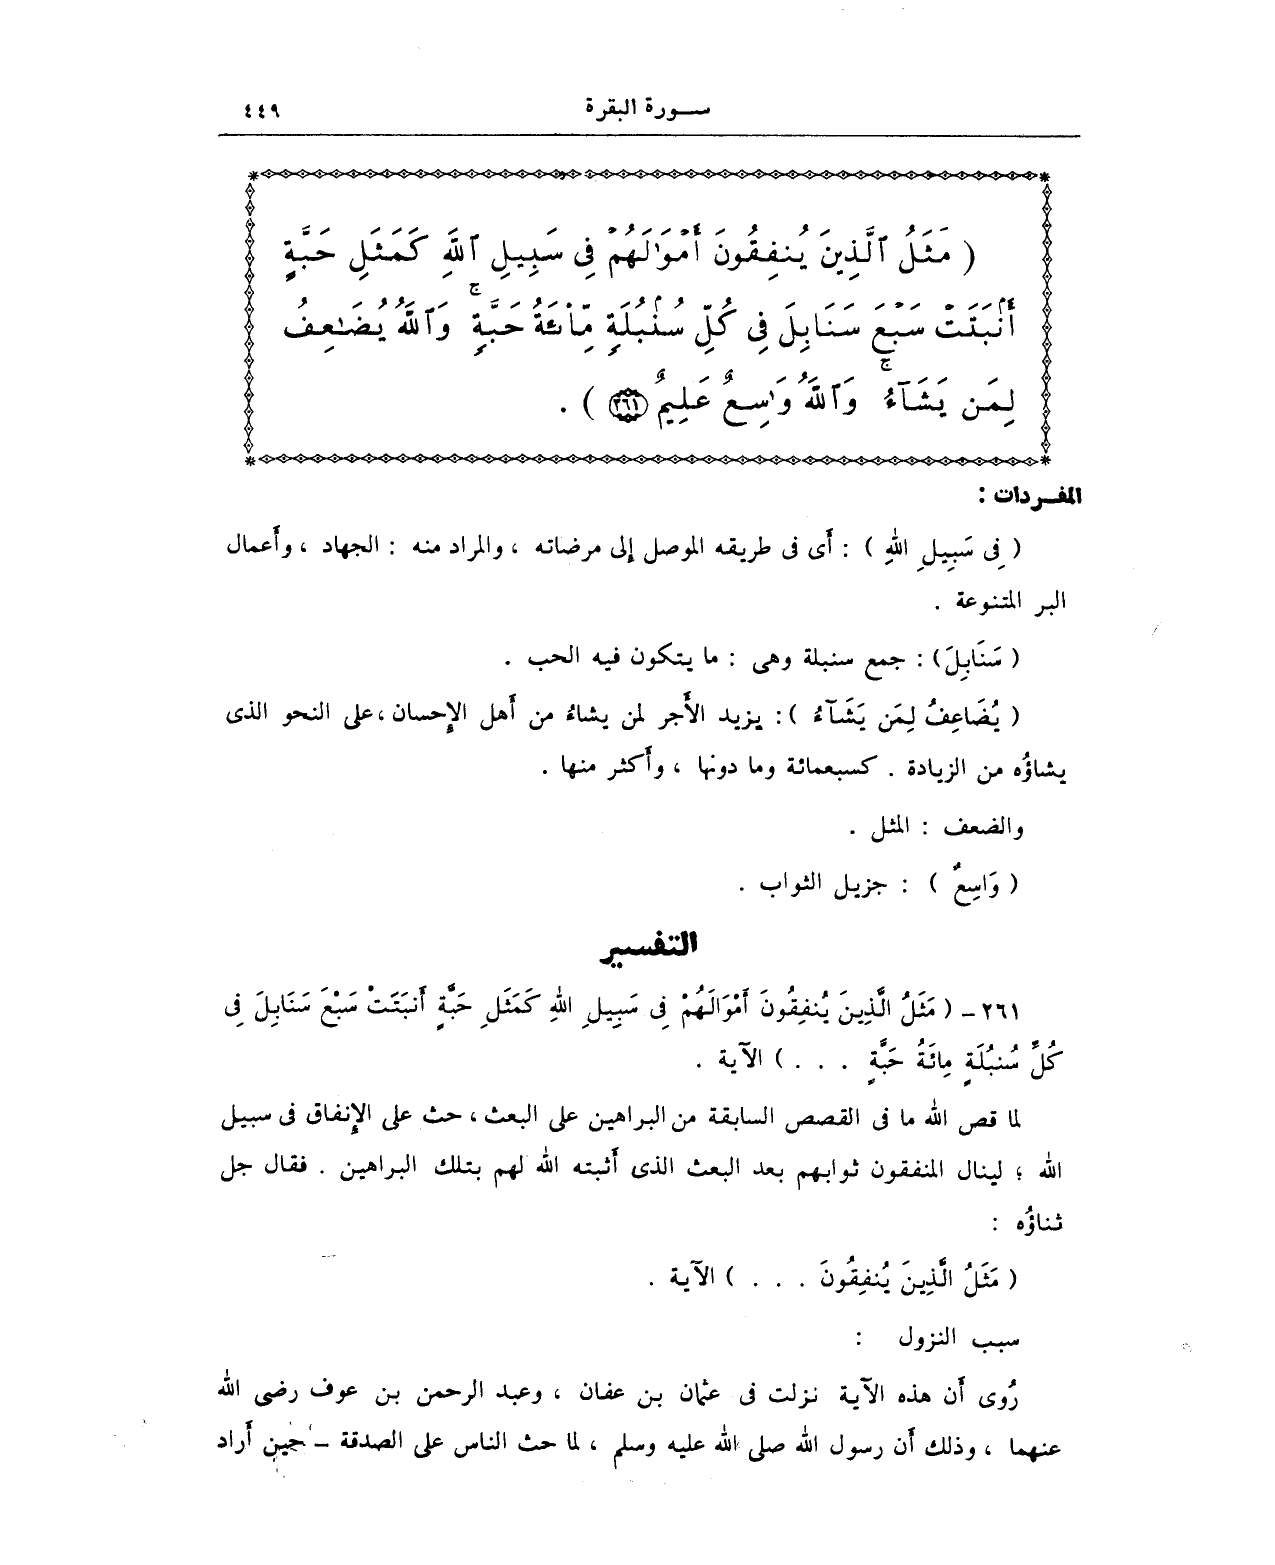 سورة البقرة ٤٤٩
( مَثَلُ ٱلَّذِينَ يُنفِقُونَ أَمْوَٰلَهُمْ فِى سَبِيلِ ٱللَّهِ كَمَثَلِ حَبَّةٍ
أَنۢبَتَتْ سَبْعَ سَنَابِلَ فِى كُلِّ سُنۢبُلَةٍ مِّاْئَةُ حَبَّةٍ ۚ وَٱللَّهُ يُضَـٰعِفُ
لِمَن يَشَآءُ ۚ وَٱللَّهُ وَٰسِعٌ عَلِيمٌ ٢٦١ ) .
المفردات :
( فِى سَبِيلِ اللهِ ) : أَى فى طريقه الموصل إلى مرضاته ، والمراد منه : الجهاد ، وأَعمال
البر المتنوعة .
( سَنَابِلَ ) : جمع سنبلة وهى : ما يتكون فيه الحب .
( يُضَاعِفُ لِمَن يَشَآءُ ) : يزيد الأَجر لمن يشاءُ من أَهل الإِحسان ، على النحو الذى
يشاؤُه من الزيادة . كسبعمائة وما دونها ، وأَكثر منها .
والضعف : المثل .
( وَاسِعٌ ) : جزيل الثواب .
التفسير
٢٦١ - ( مَثَلُ الَّذِينَ يُنفِقُونَ أَمْوَالَهُمْ فِى سَبِيلِ اللهِ كَمَثَلِ حَبَّةٍ أَنبَتَتْ سَبْعَ سَنَابِلَ فِى
كُلِّ سُنبُلَةٍ مِائَةُ حَبَّةٍ . . . ) الآية .
لما قص الله ما فى القصص السابقة من البراهين على البعث ، حث على الإِنفاق فى سبيل
الله ؛ لينال المنفقون ثوابهم بعد البعث الذى أَثبته الله لهم بتلك البراهين . فقال جل
ثناؤُه :
( مَثَلُ الَّذِينَ يُنفِقُونَ . . . ) الآية .
سبب النزول :
رُوى أَن هذه الآية نزلت فى عثمان بن عفان ، وعبد الرحمن بن عوف رضى الله
عنهما ، وذلك أَن رسول الله صلى الله عليه وسلم ، لما حث الناس على الصدقة - حين أَراد